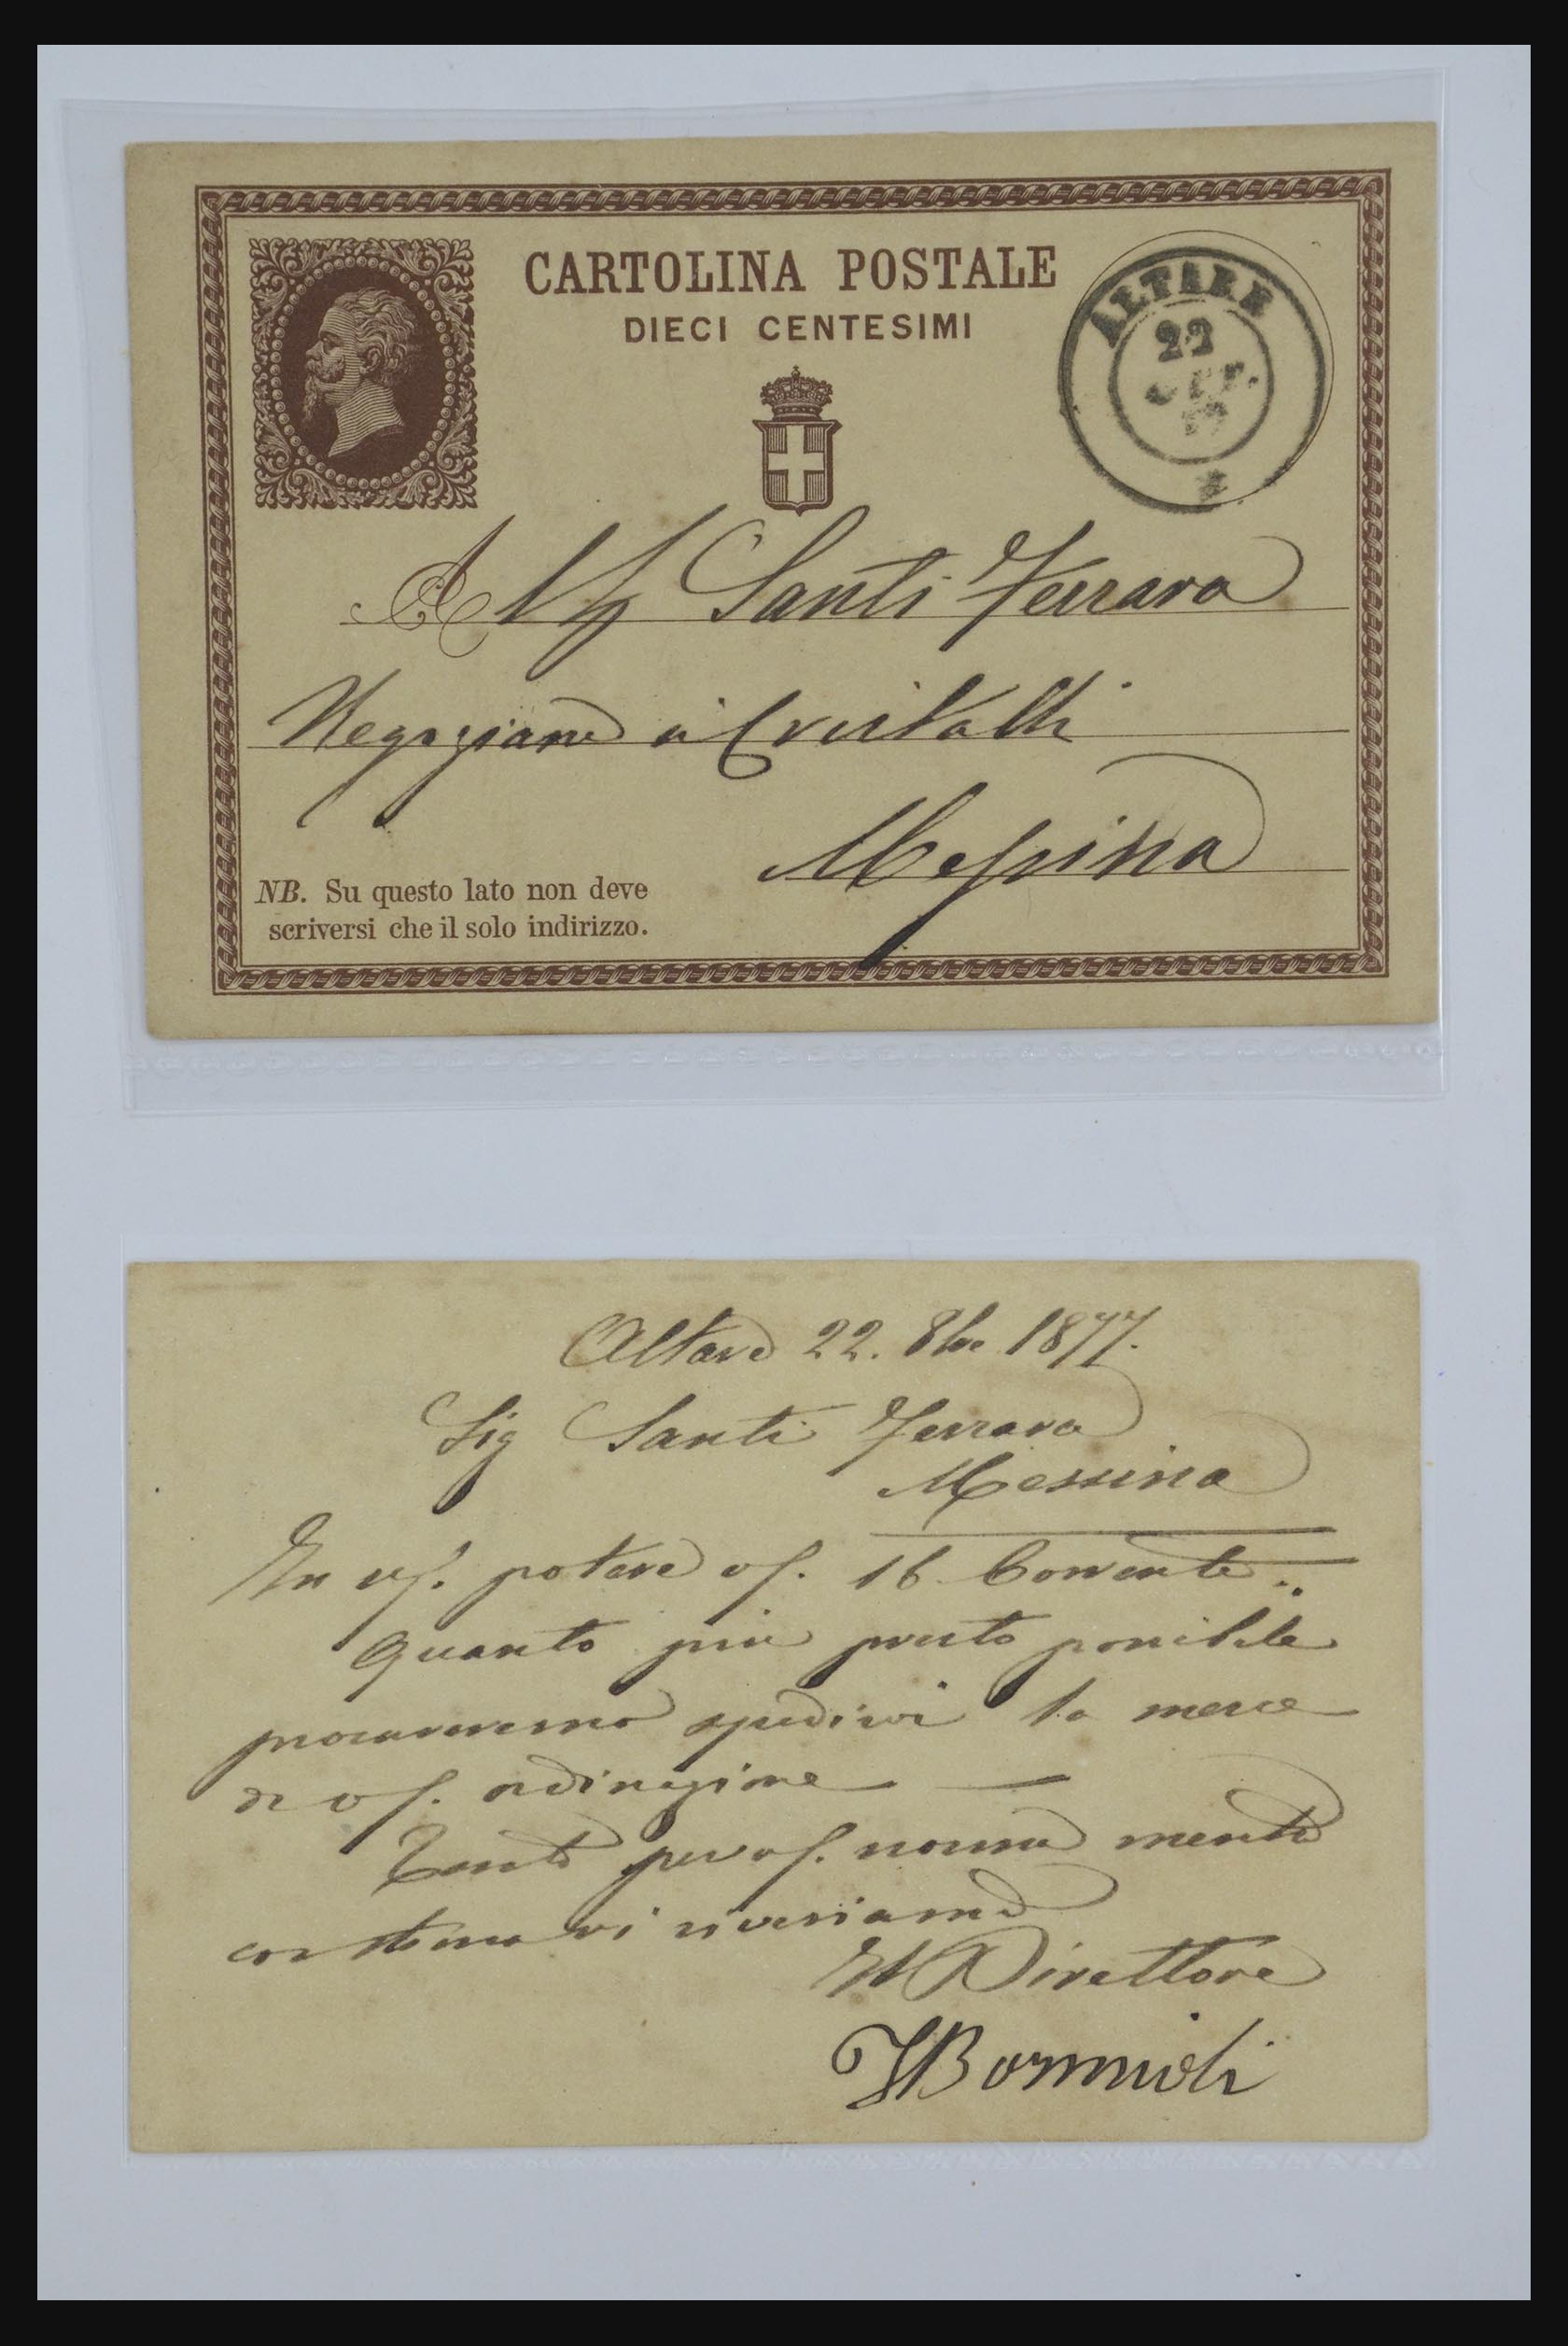 CARTOLINA POSTALE
DIECI CENTESIMI
ALTARE
22
OTT.
77
Santi Ferrara
Negoziante in Cristalli
Messina
NB. Su questo lato non deve
scriversi che il solo indirizzo.
Altare 22. 8bre 1877.
Sig Santi Ferrara
Messina
In potere 16 Corrente..
Quanto più presto possibile
procureremo spedirvi la merce
di ordinazione
Tanto per norma mentre
con stima vi riveriamo
Il Direttore
Bormioli